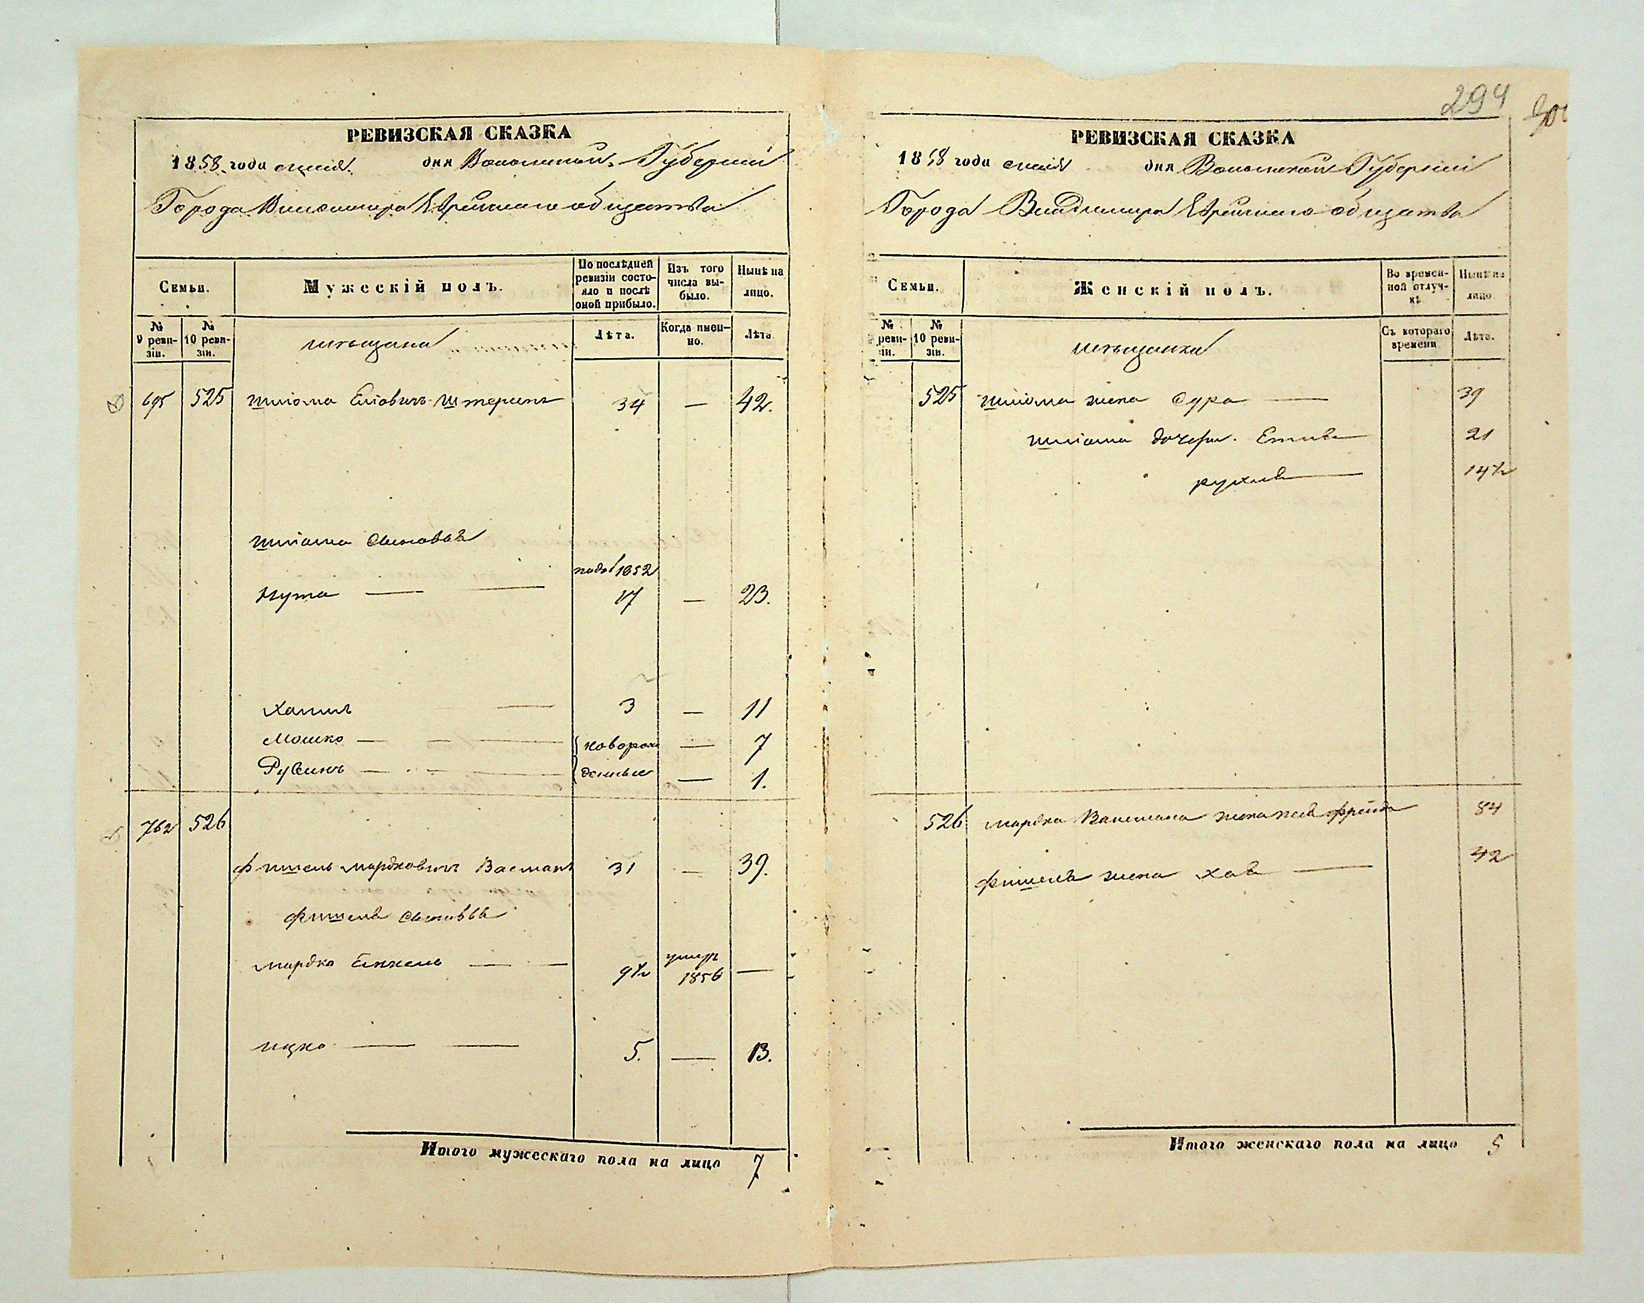 294
РЕВИЗСКАЯ СКАЗКА
1858 года дня Волынской Губернии
Города Владимира Еврейского общества
Семьи.
Мужескій полъ.
По послѣдней ревизіи состояло и послѣ оной прибыло.
Изъ того числа выбыло.
Нынѣ на лицо.
№ 9 ревизіи.
№ 10 ревизіи.
мѣщане
Лѣта.
Когда именно.
Лѣта
695 525 Шліома Еліовичъ Штернъ 34 — 42.
Шліома сыновья
Нута — — 17 — 23.
1852
Хаимъ — 3 — 11
Мошко — — — новорож — 7
Рувинъ — — — денные — 1.
762 526
Фишель Мордковичъ Васманъ 31 — 39.
Фишеля сыновья
Мордко Янкель — — 9½ умеръ 1856 —
Ицко — — 5. — 13.
Итого мужескаго пола на лицо 7
РЕВИЗСКАЯ СКАЗКА
1858 года дня Волынской Губерніи
Города Владимира Еврейского общества
Семьи.
Женскій полъ.
Во временной отлучкѣ
Нынѣ на лицо
№ ревизіи.
№ 10 ревизіи.
мѣщанки
Съ котораго времени
Лѣта.
525 Шліома жена Сура — 39
Шліома дочери. 21
Рухля — 14½
526 Мордка Васмана жена Фрейда 84
Фишеля жена Хая — 42
Итого женскаго пола на лицо 5